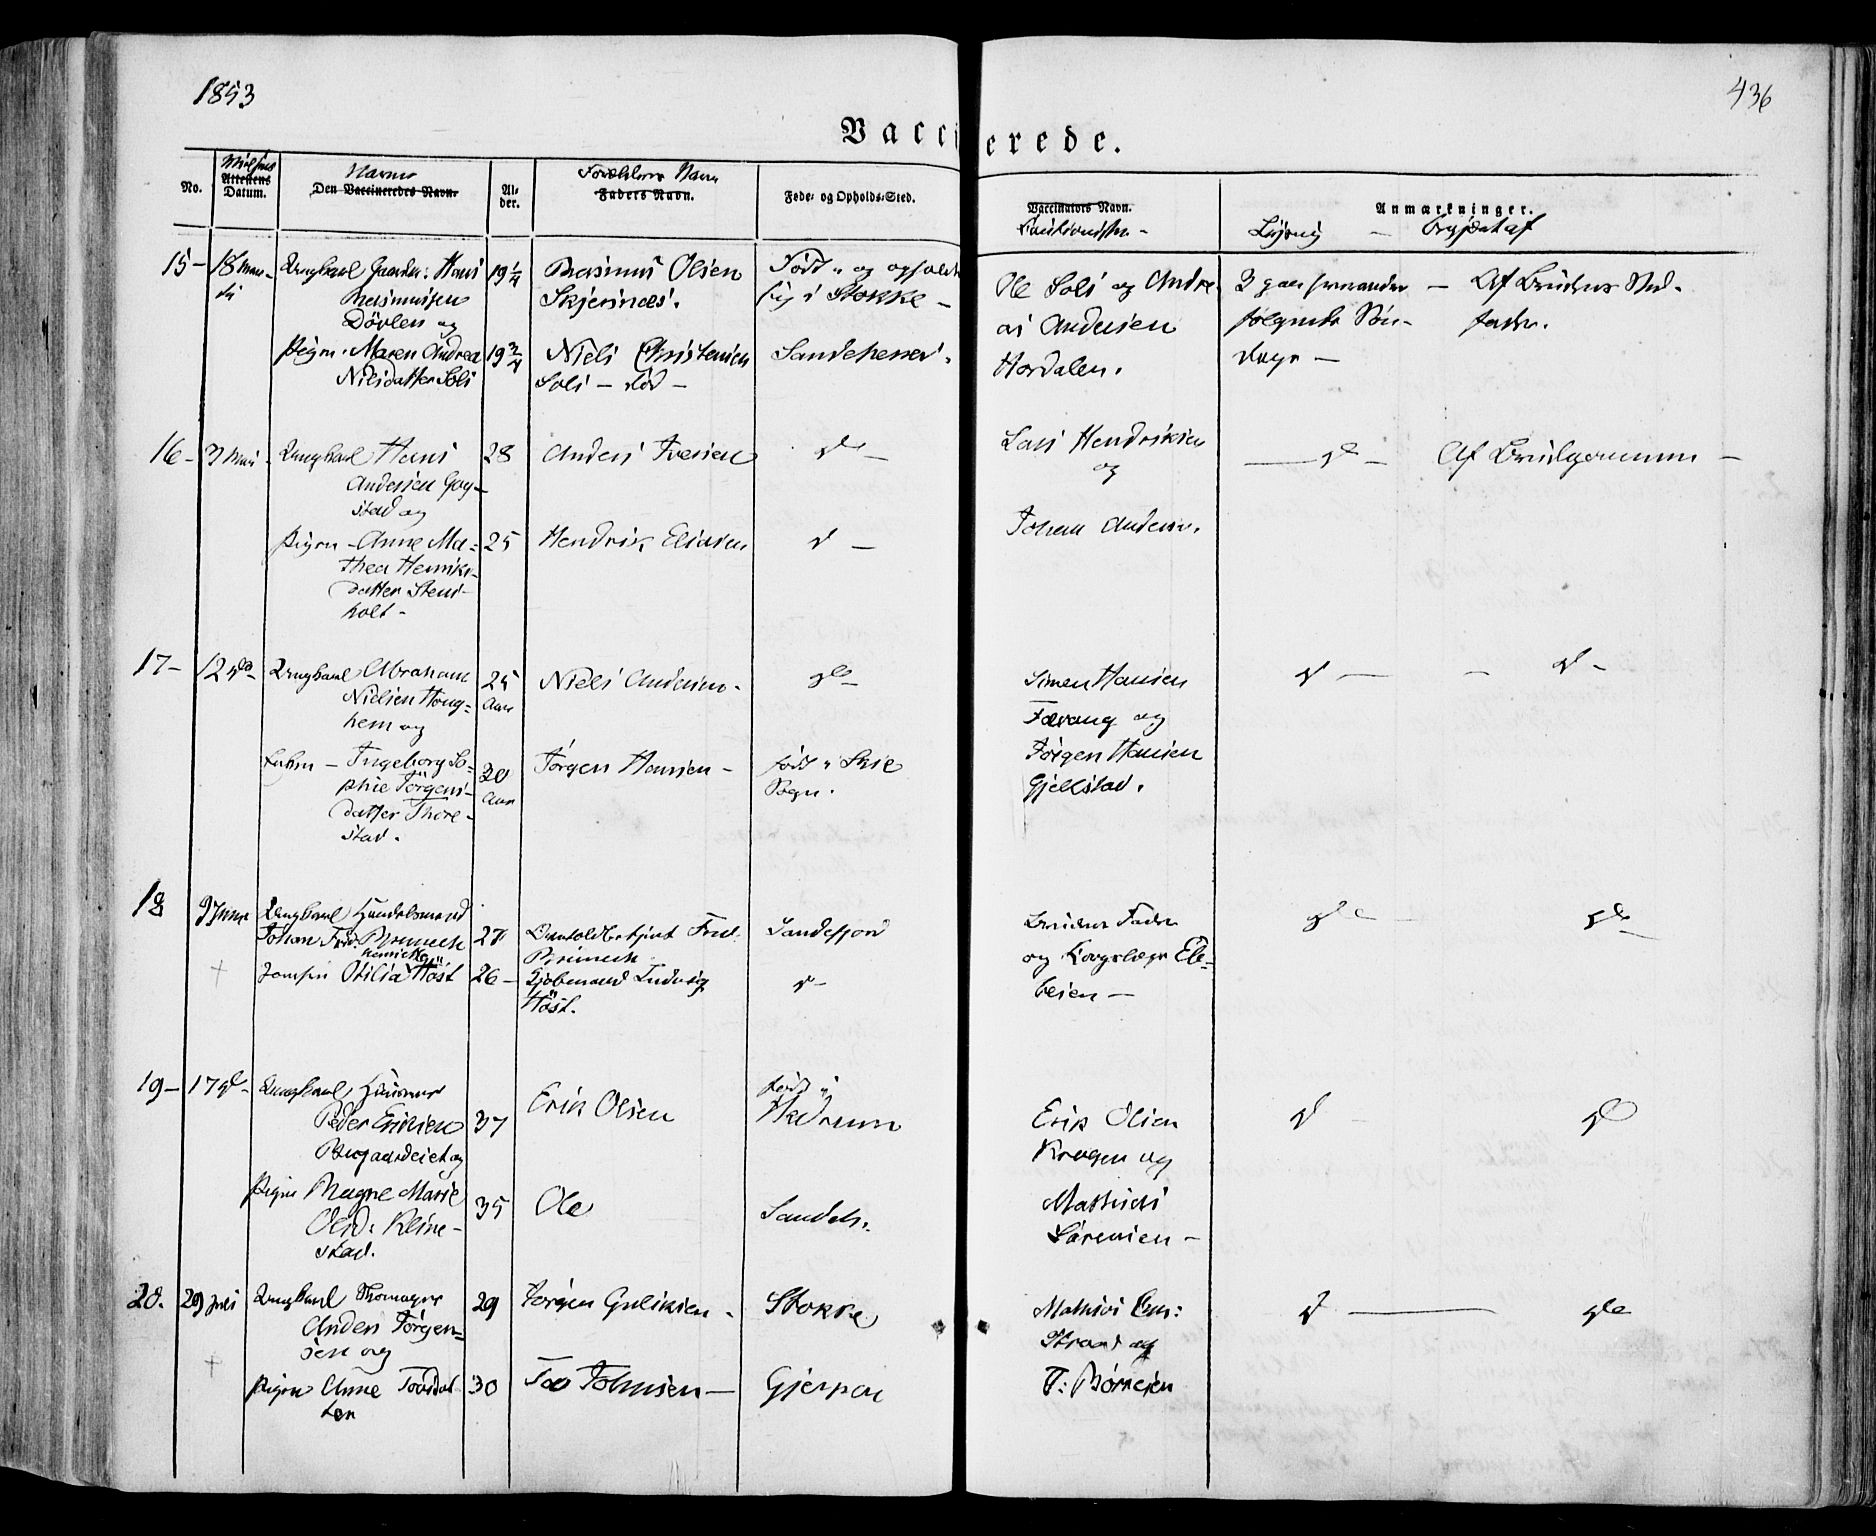 1853
436
Vaccinerede.
No.
Attestens Datum.
Navne
Den Vaccineredes Navn.
Alder.
Forældrenes Navn
Faders Navn.
Føde- og Opholds-Sted.
Vaccinators Navn.
Anmærkninger.
Lysning — Begjæret af
15 - 18 Mai
Ungkarl Hans
Rasmussen
Dövlen og
19 1/4
Rasmus Olsen
Skjersnæs.
Född og
sig i Stokke -
Ole Soli og Andre
as Andersen
Hordalen.
3 paa hinanden
følgende Søn-
dage -
Af Brudens Sted-
fader.
Pigen Maren Andrea
Nilsdatter Soli
19 3/4
Niels Christensen
Soli - död -
Sandeherred.
16 - Mai
Ungkarl Hans
Andersen Gog-
stad og
28
Anders Iversen
do -
Lars Hendriksen
og
Johan Andersen.
— do -
Af Brudgommen -
Pigen - Anne Ma-
thea Henriks-
datter Stens-
holt -
25
Hendrik Eliasen
d -
17 - 12 do
Ungkarl Abraham
Nielsen Houg-
hem og
25
Aar
Niels Andersen.
do -
Simen Hansen
Fævang og
Jörgen Hansen
Gjelstad.
d - - d -
Enken - Ingeborg So-
phie Jörgens-
datter Thore-
stad.
30
Aar
Jörgen Hansen -
född i Skie
Sogn.
18
Juni
Ungkarl Handelsmand
Johan Fred. Brinech
27
Fred.
Brinech
Sandefjord
Brudens Fader
og Ele-
beien -
do - do -
Jomfru Otilia Höst
26 -
Kjöbmand Ludvig
Höst.
d -
19 - 17 do -
Ungkarl Huusmand
Peder Eriksen
og
37
Erik Olsen
född i
Hedrum
Erik Olsen
Kragen og
Mathias
Sörensen -
d - do
Pigen Ragne Marie
Olsd. Kline-
stad.
35
Ole
Sandeh.
20. 29 Juli
Ungkarl
Anders Jörgen-
sen og
29
Jörgen Guliksen -
Stokke
Mathias
Strand og
T: Börresen
d — do
Pigen Anne Tovsdat
ter
30
Tov Johnsen -
Gjerpen